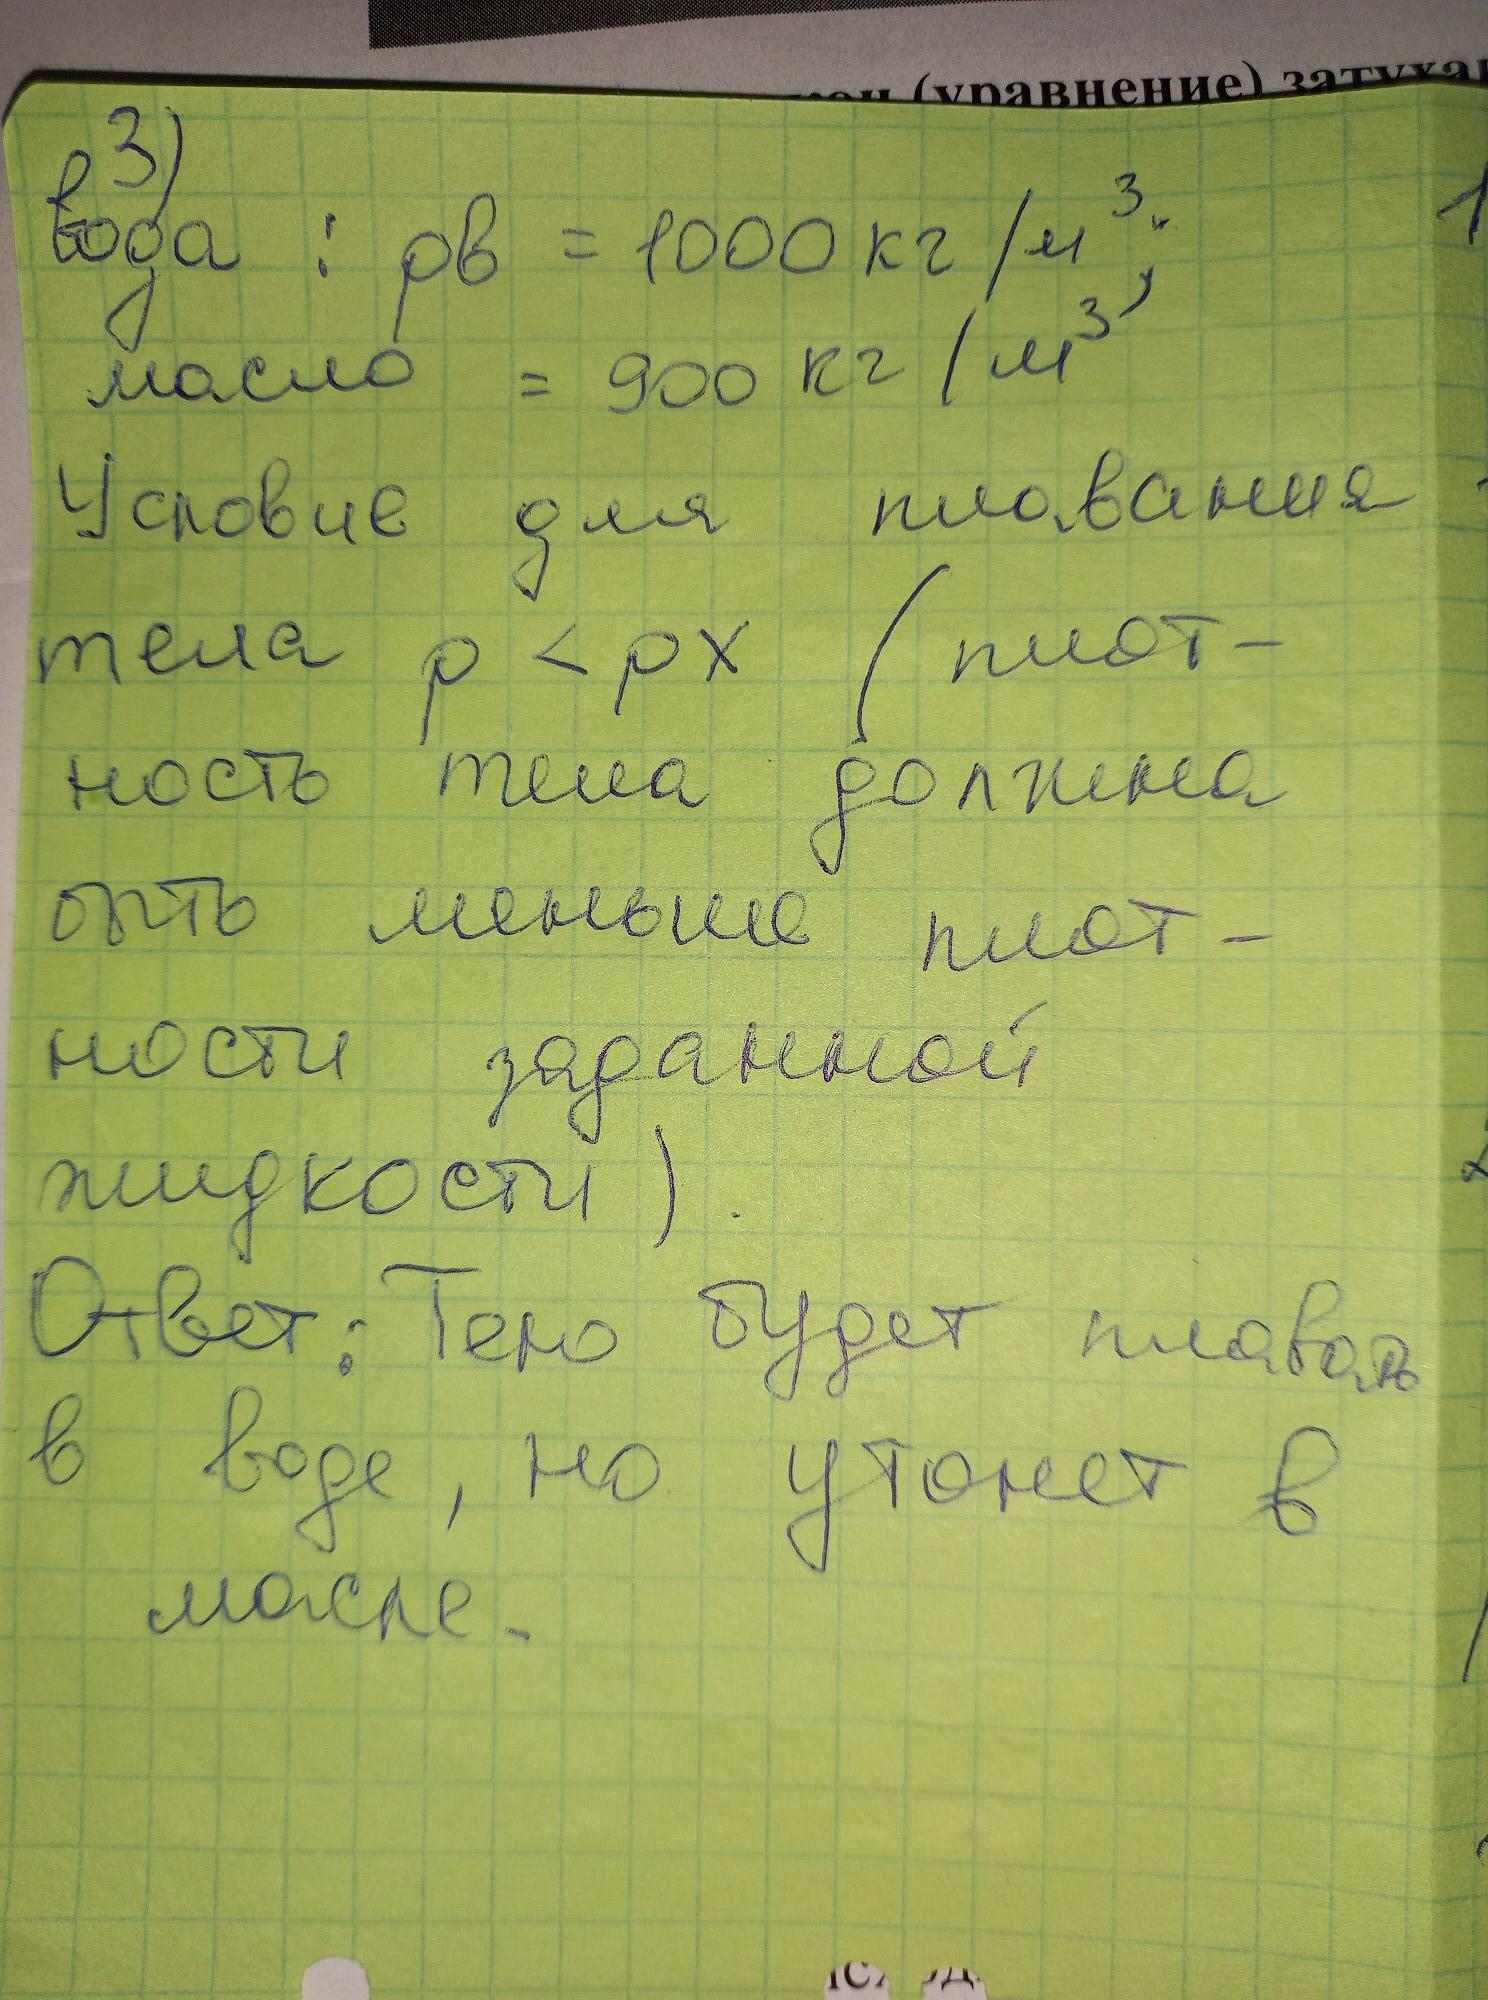 кон (уравнение) затухан
3)
вода : ρв = 1000 кг/м³;
масло = 900 кг/м³
Условие для плавания
тела ρ < ρх (плот-
ность тела должна
быть меньше плот-
ности заданной
жидкости).
Ответ: Тело будет плавать
в воде, но утонет в
масле.